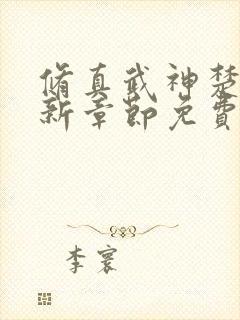 脩真武神楚
新章節免費
李寰